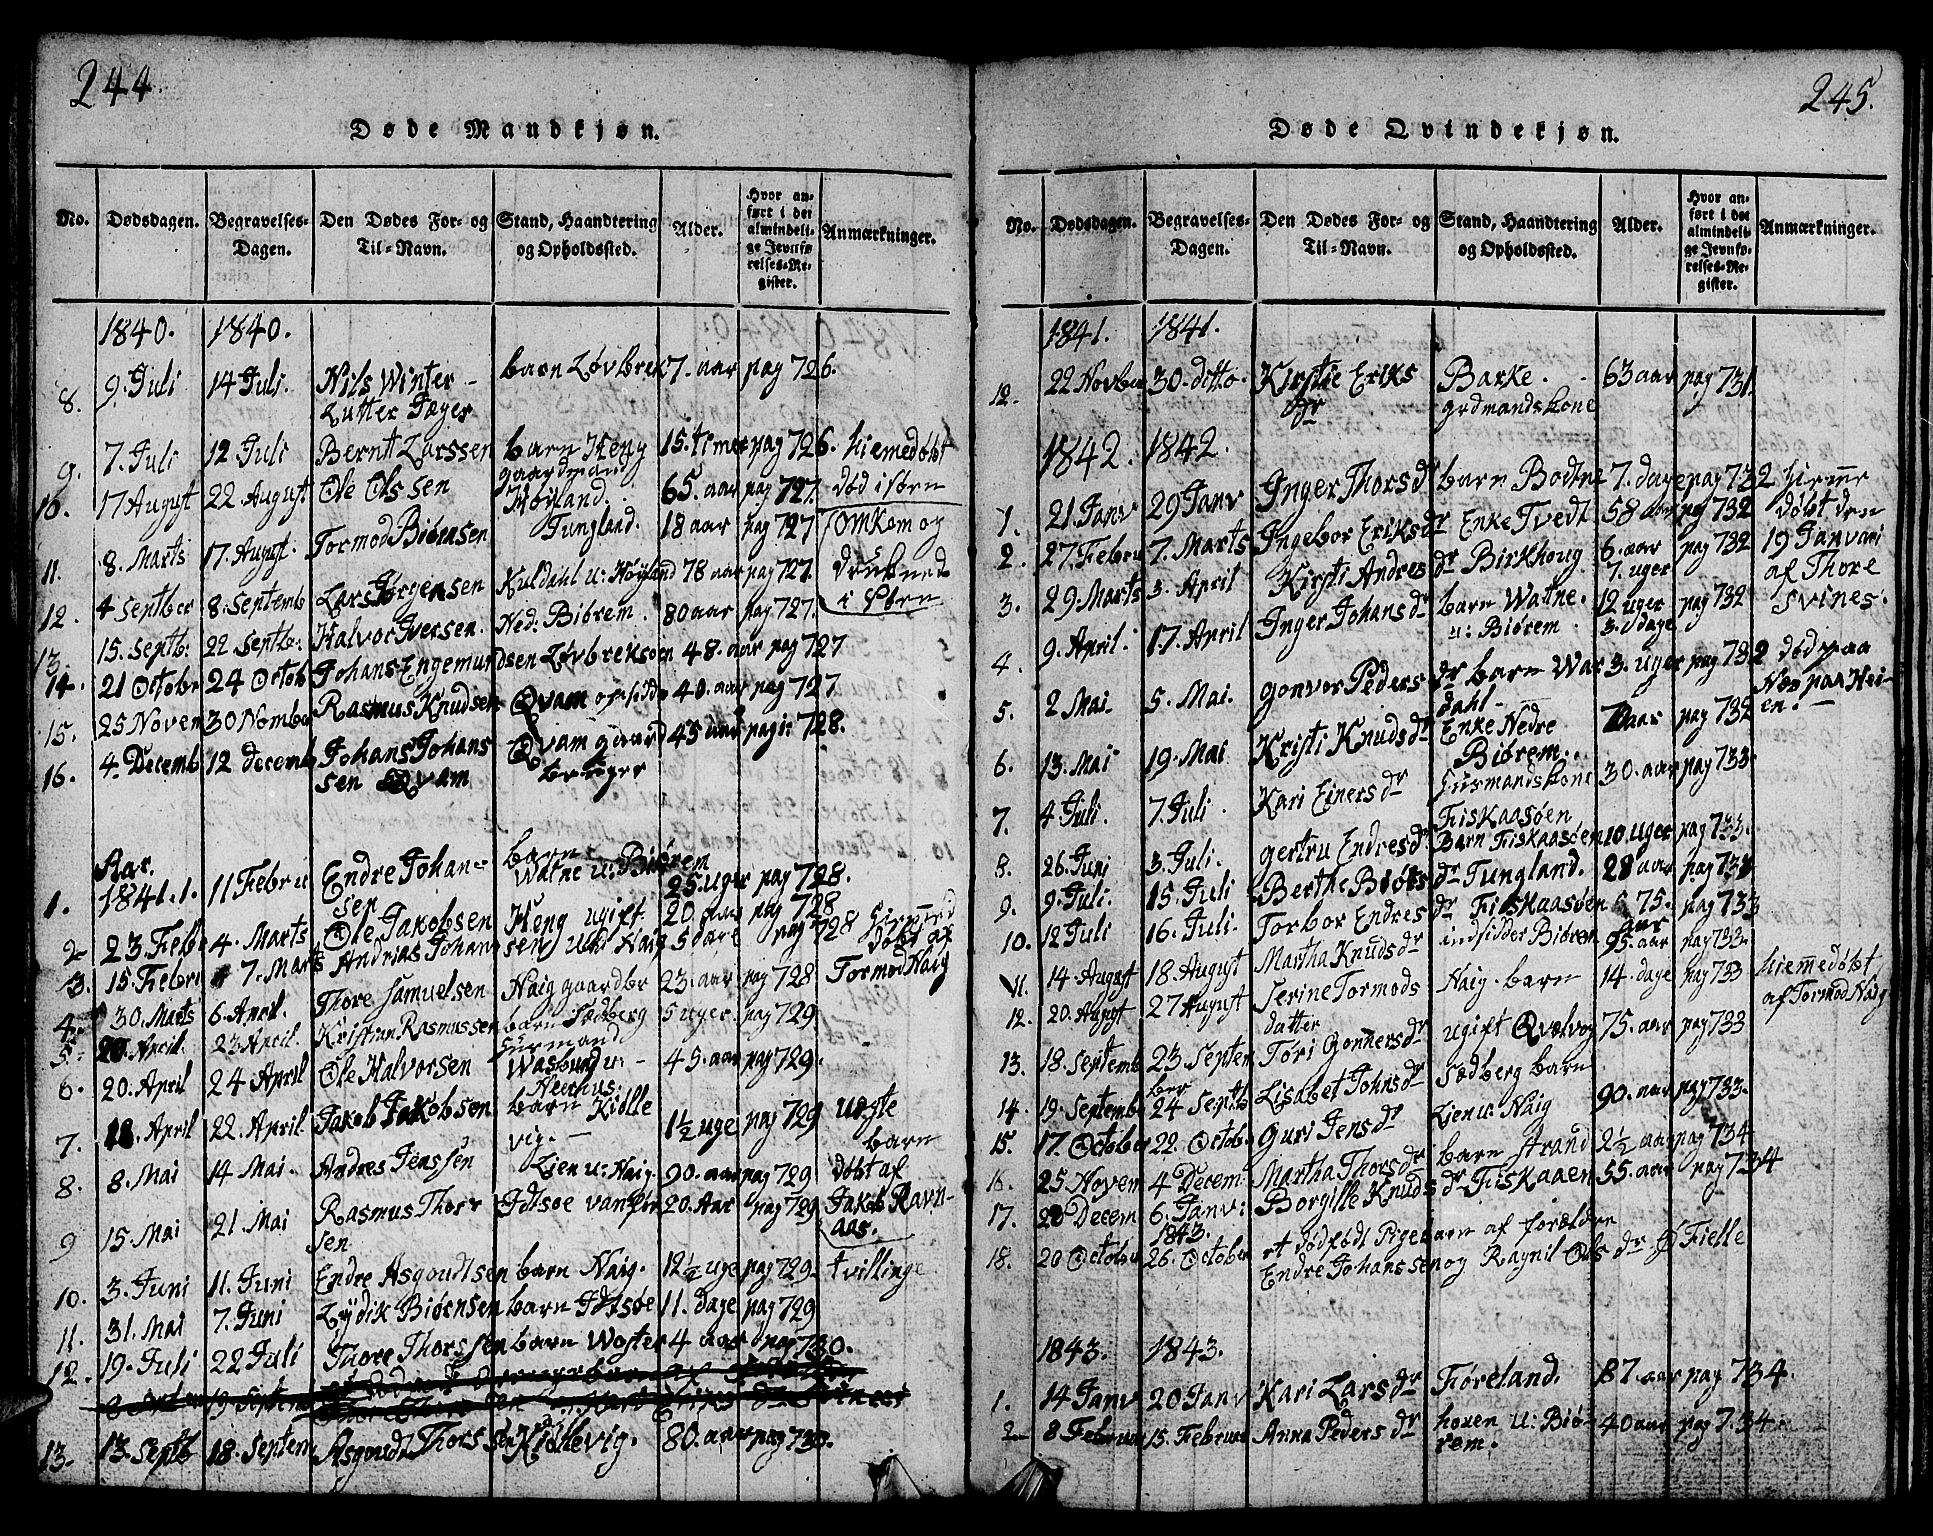 244.
Døde Mandkjøn.
No. Dødsdagen. Begravelses-Dagen. Den Dødes For- og Til-Navn. Stand, Haandtering og Opholdssted. Alder. Hvor anført i det almindelige Jevnførelses-Register. Anmærkninger.
1840. 1840.
8. 9. Juli 14 Juli. Nils Winter barn Løvbrek 7. aar pag 726.
Lutter Jæger
9. 7. Juli 12 Juli Bernt Larssen barn Heng 15. timer pag 726. hiemedøbt
10. 17 August 22 August Ole Olssen gaardmand Høiland. 65. aar pag 727 død i søen
11. 8. Marts 17. August. Tormod Biørnsen Tungland. 18 aar pag 727 omkom og
12. 4 Septber 8. Septemb Lars Jørgensen Kuldahl u: Høyland 78 aar pag 727. drukned
13. 15. Septb: 22 Septb: Halvor Iversen. Ned: Biørem. 80 aar pag 727. i Søen
14. 21 Octobr 24 Octob Johans Engemundsen Løvbreksøen 48. aar pag 727
15. 25 Novem 30 Nomber Rasmus Knudsen Qvam opsidder 40. aar pag 727
16. 4. Decemb 12 decemb Johans Johans Qvam gaard 45 aar pag: 728.
sen Qvam bruger
Aar. barn
1. 1841. 1. 11 Febru Endre Johan= Watne u: Biørem 25. uger pag 728.
sen
2 23. Febr 4. Marts Ole Jakobsen Heng ugift. 20. aar pag 728
3. 15. Febru 7. Marts Andrias Johansen Naig 5 dage pag 728 døbt af
4. 30. Marts 6. April. Thore Samuelsen Naig gaardbr 23. aar pag 728 Tormod Naig
5. 20. April. 23 April. Kristian Rasmussen barn Sødberg 5 uger. pag 729
6. 20. April 24 April Ole Halvorsen husmand 45. aar pag 729.
7. 18. April 22. April. Jakob Jakobsen barn Kidlle 1½ uge pag 729 uægte
vig. barn
8. 8. Mai 14 Mai. Andres Jenssen Lien u: Naig. 90. aar pag 729 døbt af
9 15. Mai 21. Mai Rasmus Thors Idtsøe 20. Aar pag 729 Jakob Ravn-
sen aas.
10. 3. Juni 11. Juni Endre Asgoudtsen barn Naig. 12½ uge pag 729. tvillinge
11. 31. Mai 7. Juni Lydik Biørensen barn Idtsøe 11. dage pag 729
12. 19. Juli 22 Juli Thore Thorssen barn Woster 4 aar pag 730.
13. 13. Septb 18. Septem Asgoudt Thorssen Kidllevig. 80. aar pag 730.
245.
Døde Qvindekjøn.
No. Dødsdagen. Begravelses-Dagen. Den Dødes For- og Til-Navn. Stand, Haandtering og Opholdssted. Alder. Hvor anført i det almindelige Jevnførelses-Register. Anmærkninger.
1841. 1841.
12. 22 Novber 30. ditto. Kirstie Eriks Barke. 63 aar pag 731.
dr grdmandskone
1842. 1842.
1. 21 Janv 29 Janv Inger Thorsdr barn Bodtne 7. dage pag 732 hieme
2. 27 Febru 7. Marts Ingebor Eriksdr Enke Tvedt 58 aar pag 732 døbt den
3. 29. Marts 3. April Kirsti Andresdr Birkhoug 6. aar 7. uger pag 732 19 Januari
4. 9. April. 17. April Inger Johansdr barn Watne. u: Biørem. 12 uger 3. dage pag 732 af Thore Svines.
5. 2 Mai 5. Mai. Gonvor Pedersdr barn War 3. uger pag 732 død paa
dahl
6. 13. Mai 19. Mai Kristi Knudsdr Enke Nedre Biørem. aar pag 732 en.
7. 4 Juli. 7. Juli. Kari Einersdr husmandskone 30. aar pag 733.
Fiskaasøen
8. 26. Juni 3. Juli. Gertru Endresdr Barn Fiskaasøen 10 uger pag 733.
9. 9. Juli. 15. Juli Berthe dr Tungland. 28 aar pag 733
10. 12 Juli 16. Juli. Torbor Endresdr Fiskaasøen 75. aar pag 733
11. 14. August 18. August Martha Knudsdr indsidder Biørem 95. aar pag 733.
12. 20. August 27 August Serine Tormods Naig. barn 14. dage pag 733 hiemedøbt
datter af Tormod Naig
13. 18. Septemb 23. Septem Tøri Gonnersdr ugift Qvælvog 75. aar pag 733
14. 19. Septemb 24 Septb Lisabet Johnsdr Sødberg barn 90. aar pag 733.
15. 17. October 22. Octob. Guri Jensdr Lien u: Naig 2½ aar pag 734
16. 25 Novem 4 Decem. Martha Thorsdr barn Strand 55. aar pag 734
17. 28 Decem 6. Janv: 1843. Borgille Knudsdr Fiskaaen
18. 20 October 26. October et dødfødt Pigebarn af forældre
Endre Johanssen og Ragnil Olsdr Fielle
1843. 1843.
1. 14 Janv 20 Janv Kari Larsdr Tiøreland. 87. aar pag 734.
2 8 Februar 15. Februar Anna Pedersdr u: Biø- 40 aar pag 734.
rem.